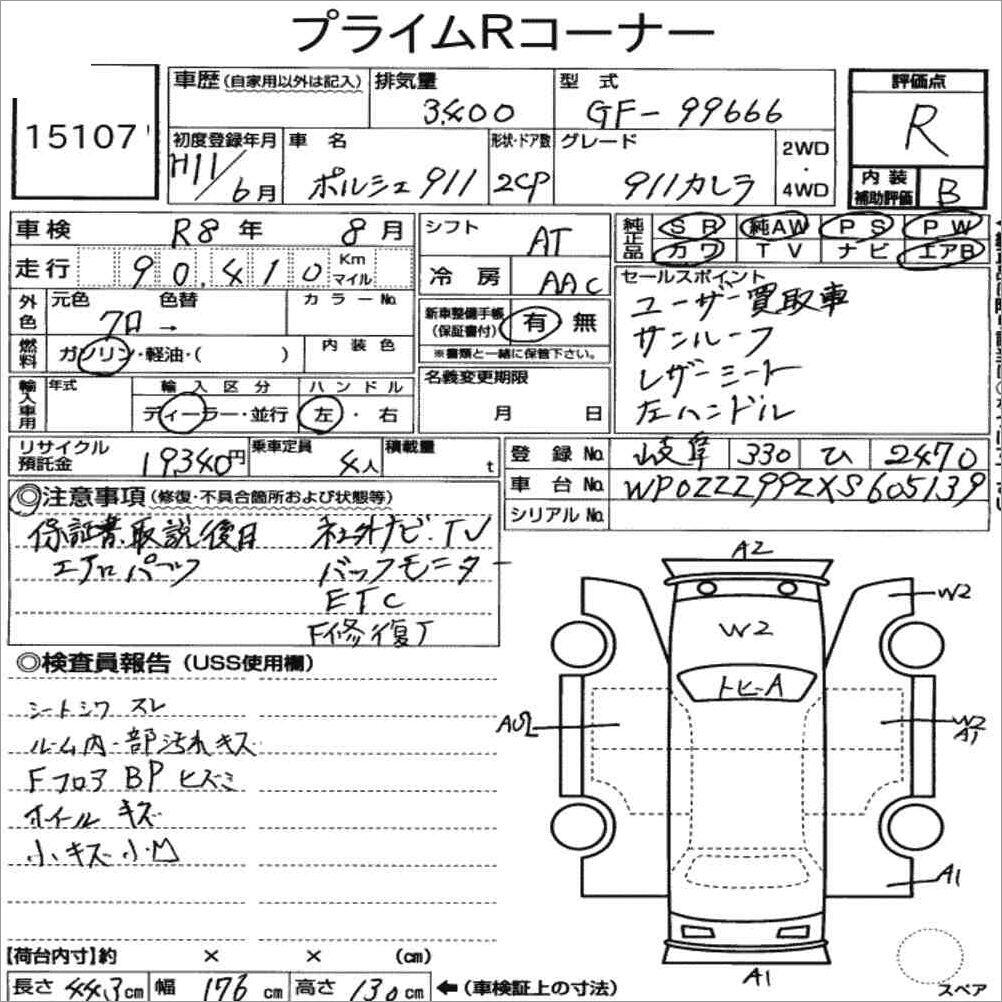 プライムRコーナー
15107
車歴(自家用以外は記入) 排気量 3400 型式 GF-99666 評価点 R
初度登録年月 H11/6月 車名 ポルシェ911 形状・ドア数 2CP グレード 911カレラ 2WD・4WD 内装補助評価 B
車検 R8年 8月 シフト AT 純正品 SR 純AW PS PW
走行 90,410 Km マイル 冷房 AAC カワ TV ナビ エアB
外色 元色 クロ→ 色替 カラーNo.
燃料 ガソリン・軽油・( ) 内装色
新車整備手帳(保証書付) 有 無
※書類と一緒に保管下さい。
セールスポイント
ユーザー買取車
サンルーフ
レザーシート
左ハンドル
輸入車用 年式 輸入区分 ディーラー・並行 ハンドル 左・右
名義変更期限 月 日
リサイクル預託金 19340円 乗車定員 4人 積載量 t
登録No. 岐阜 330 ひ 2470
車台No. WP0ZZZ99ZXS605139
シリアルNo.
◎注意事項(修復・不具合箇所および状態等)
保証書.取説後日 社外ナビ・TV
エアロパーツ バックモニター
ETC
F修復了
◎検査員報告(USS使用欄)
シートシワ スレ
ルーム内一部汚れキズ
Fフロア BP ヒズミ
ホイール キズ
小キズ小凹
A2
W2
W2
トビーA
W2
A1
A1
A1
スペア
【荷台内寸】約 × × (cm)
長さ 443cm 幅 176cm 高さ 130cm ←(車検証上の寸法)